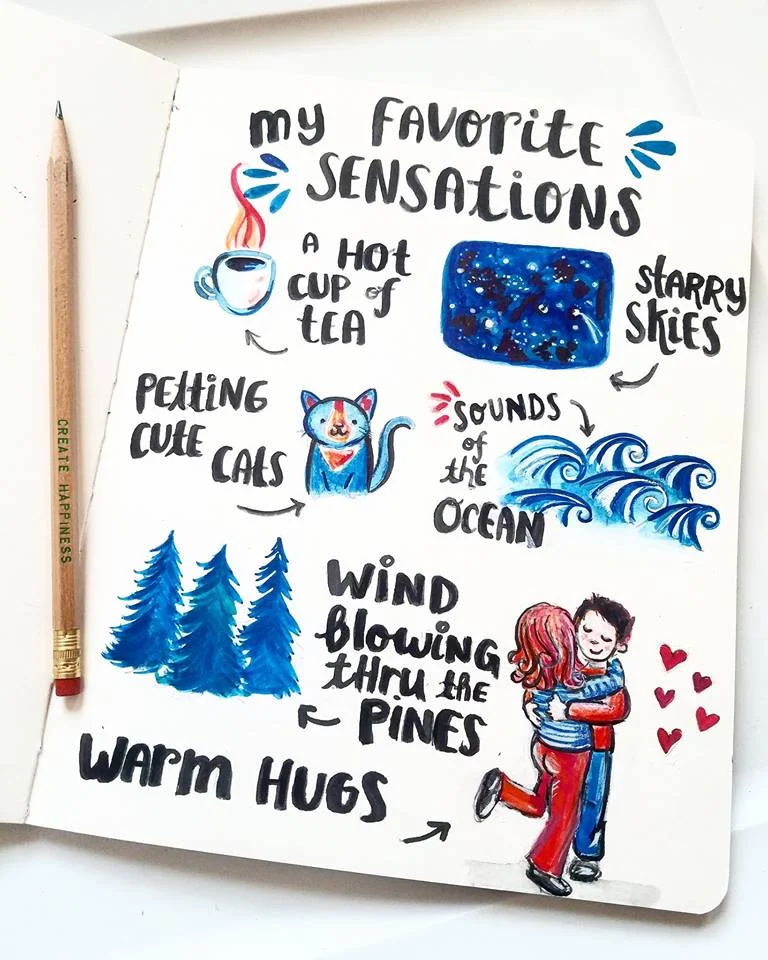 my FAVOritE
SENSAtiONS
A HOt
CUP of
tEA
StARRY
SKiES
PEttiNG
CUtE
CAtS
SOUNDS
of
the
OCEAN
WiND
BlOWiNG
tHRU the
PiNES
WArm HUGS
CREATE HAPPINESS